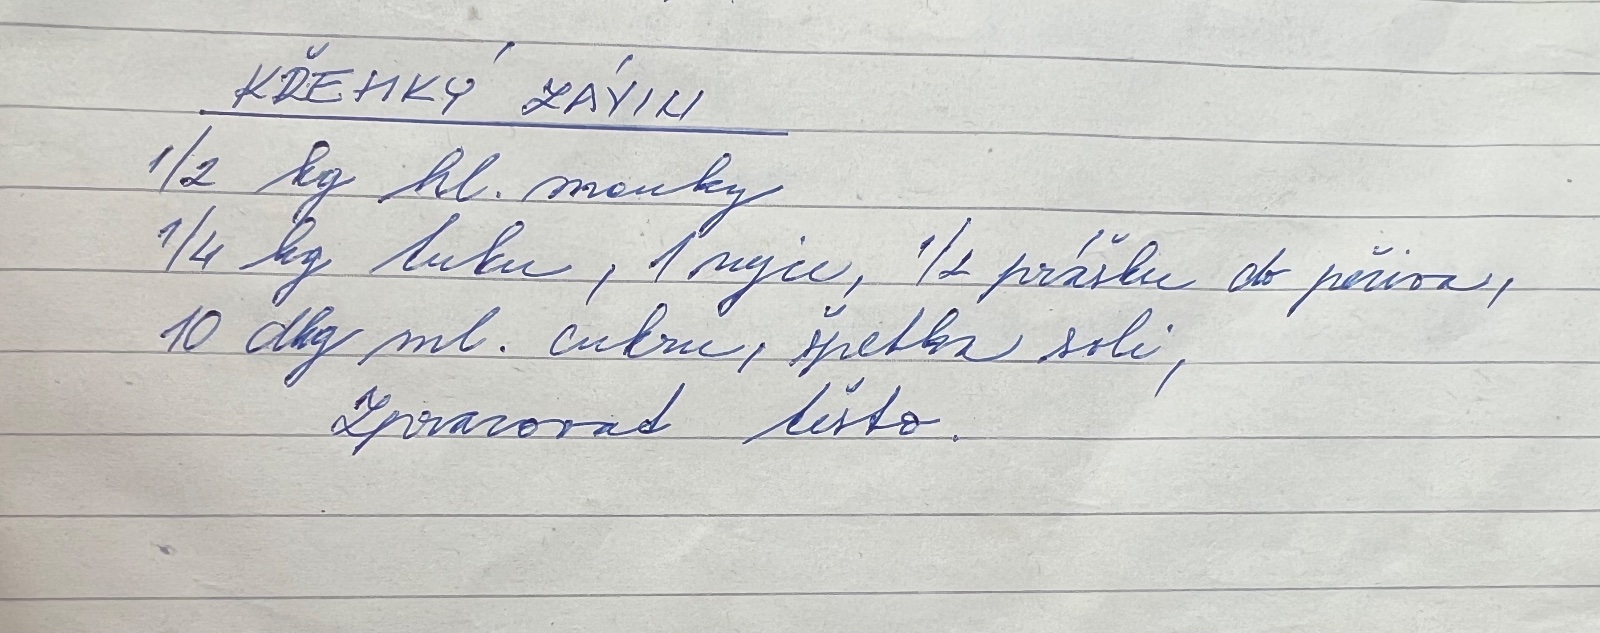 KŘEHKÝ ZÁVIN
1/2 kg hl. mouky
1/4 kg tuku, 1 vejce, 1/2 prášku do pečiva,
10 dkg ml. cukru, špetka soli,
Zpracovat těsto.